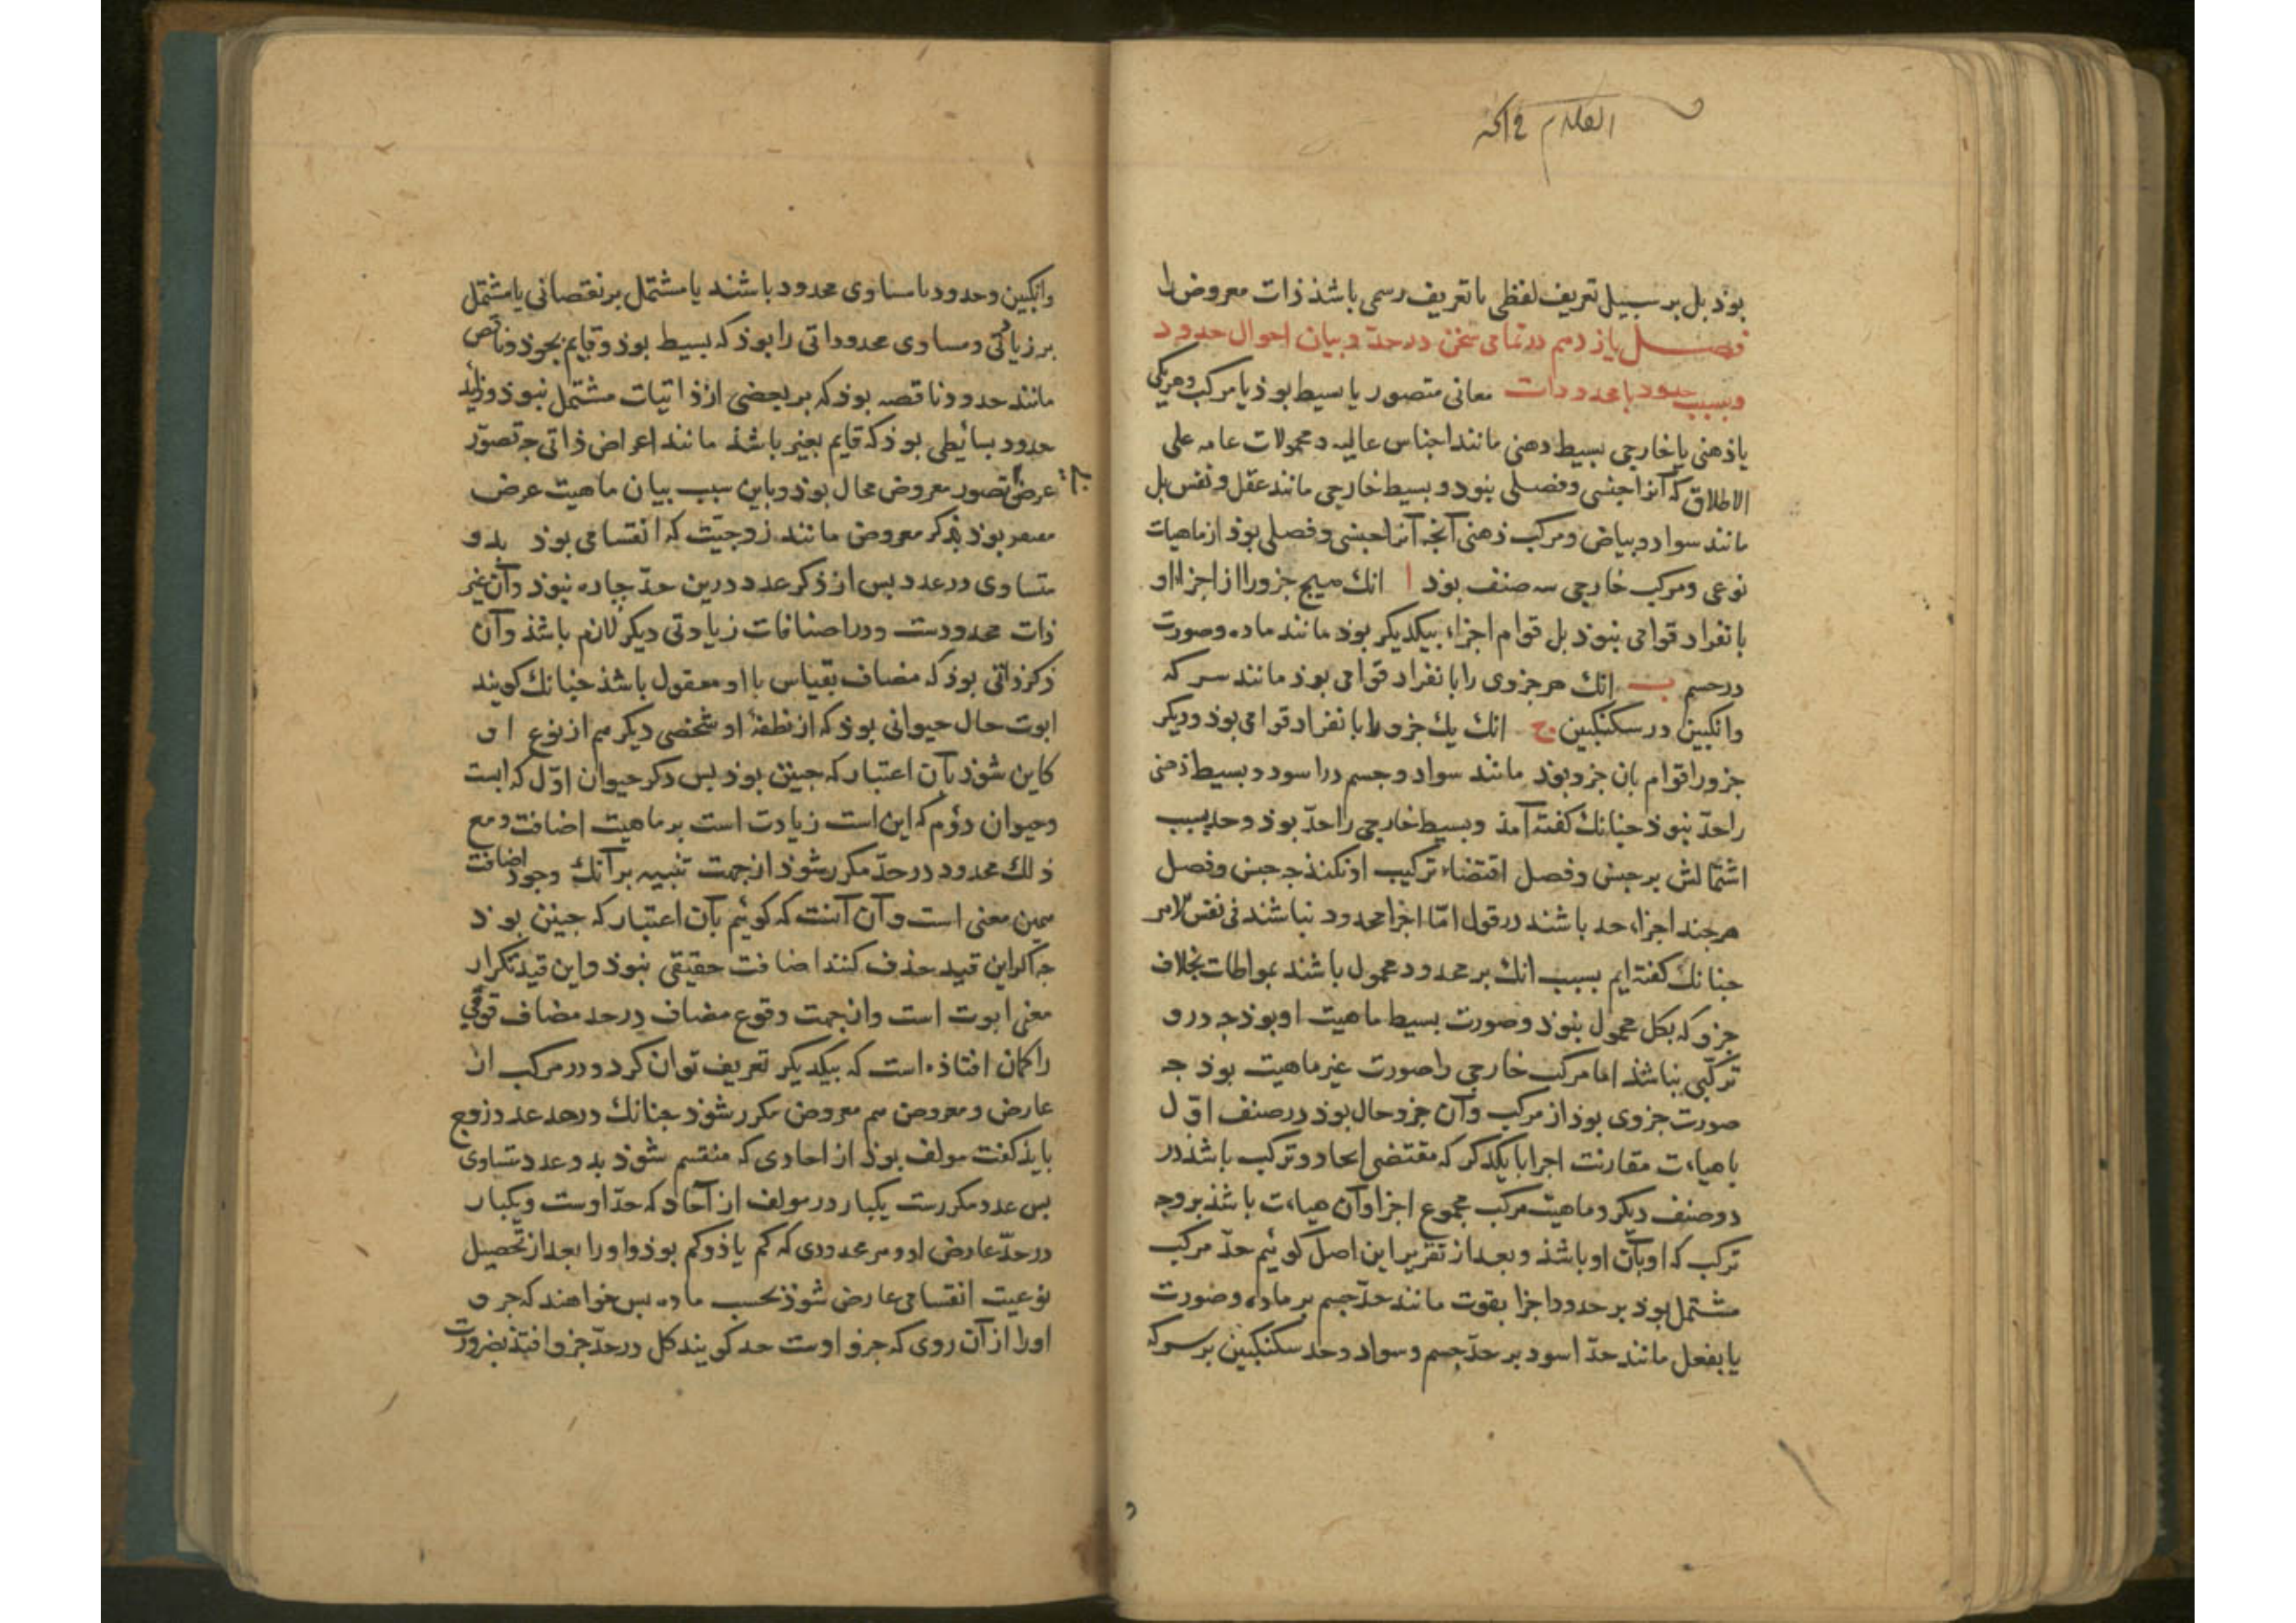 بوذ بل بر سبیل تعریف لفظی یا تعریف رسمی باشذ ذات معروض را
فصل یازدهم در تمامی سخن در حدّ و بیان احوال حدود
با محدودات معانی متصور یا بسیط بوذ یا مرکب و هریکی
یا ذهنی یا خارجی بسیط ذهنی مانند اجناس عالیه و محمولات عامه علی
الاطلاق که آنرا جنسی و فصلی نبود و بسیط خارجی مانند عقل و نفس بل
مانند سواد و بیاض و مرکب ذهنی آنچه آنرا جنسی و فصلی بوذ از ماهیات
نوعی و مرکب خارجی سه صنف بوذ ا انک هیچ جزو را از اجزاء او
بانفراد قوامی نبوذ بل قوام اجزاء بیکدیگر بوذ مانند ماده و صورت
در جسم ب انک هر جزوی را بانفراد قوامی بوذ مانند سرکه
وانکبین در سکنکبین ج انک یک جزو را بانفراد قوامی بوذ و دیکر
جزو را قوام بان جزو بوذ مانند سواد و جسم در اسود و بسیط ذهنی
را حدّ نبوذ جنانک کفته آمذ و بسیط خارجی را حدّ بوذ و حد بسبب
اشتمالش بر جنس و فصل اقتضاء ترکیب او نکنذ جه جنس و فصل
هرجند اجزاء حد باشند در قول امّا اجزا محدود نباشند فی نفس الامر
جنانک کفته ایم بسبب انک بر محدود محمول باشند بمواطات بخلاف
جزو که بکل محمول نبوذ و صورت بسیط ماهیت او بوذ جه درو
ترکبی نباشذ اما مرکب خارجی را صورت غیر ماهیت بوذ جه
صورت جزوی بوذ از مرکب و آن جزو حال بوذ در صنف اوّل
یا هیاءت مقارنت اجزا با یکدکر که مقتضی اتحاد و ترکب باشذ در
دو صنف دیکر و ماهیت مرکب مجموع اجزا و آن هیاءت باشذ بر وجه
ترکب که او بآن او باشذ و بعد از تقریر این اصل کوئیم حدّ مرکب
مشتمل بوذ بر حدود اجزا بقوت مانند حدّ جسم بر ماده و صورت
یا بفعل مانند حدّ اسود بر حدّ جسم و سواد و حد سکنکبین بر سرکه
وانکبین و حدود یا مساوی محدود باشند یا مشتمل بر نقصانی یا مشتمل
بر زیادتی و مساوی محدوداتی را بوذ که بسیط بوذ و قایم بخوذ و ناقص
مانند حدود ناقصه بوذ که بر بعضی از ذاتیات مشتمل نبوذ و زاید
حدود بسائطی بوذ که قایم بغیر باشذ مانند اعراض ذاتی جه تصوّر
عرض تصور معروض محال بوذ و باین سبب بیان ماهیت عرض
بوذ بذکر معروض مانند زوجیّت که انقسامی بوذ بدو
متساوی در عدد بس از ذکر عدد درین حدّ جاره نبوذ و آن غیر
ذات محدودست و در اضافات زیادتی دیکر لازم باشذ و آن
ذکر ذاتی بوذ که مضاف بقیاس با او معقول باشذ جنانک کویند
ابوت حال حیوانی بوذ که از نطفهٔ او شخصی دیکر هم از نوع او
کاین شوذ بآن اعتبار که جنین بوذ بس ذکر حیوان اوّل که ابست
و حیوان دوُم که ابن است زیادت است بر ماهیت اضافت و مع
ذلک محدود در حدّ مکرر شوذ از جهت تنبیه بر آنک وجود اضافت
همین معنی است و آن آنست که کوئیم بآن اعتبار که جنین بوذ
جه اکر این قید حذف کنند اضافت حقیقی نبوذ و این قید تکرار
معنی ابوت است و از جهت وقوع مضاف در حد مضاف قومی
را کمان افتاذه است که بیکدیکر تعریف توان کرد و در مرکب از
عارض و معروض هم معروض مکرر شوذ جنانک در حد عدد زوج
بایذ کفت مولف بوذ از احادی که منقسم شوذ بدو عدد متساوی
بس عدد مکررست یکبار در مولف از آحاد که حدّ اوست و یکبار
در حدّ عارض او و هر محدودی که کم یا ذو کم بوذ و او را بعد از تحصیل
نوعیت انقسامی عارض شوذ بحسب ماده بس خواهند که جزو
او را از آن روی که جزو اوست حد کویند کل در حدّ جزو افتذ بضرورت